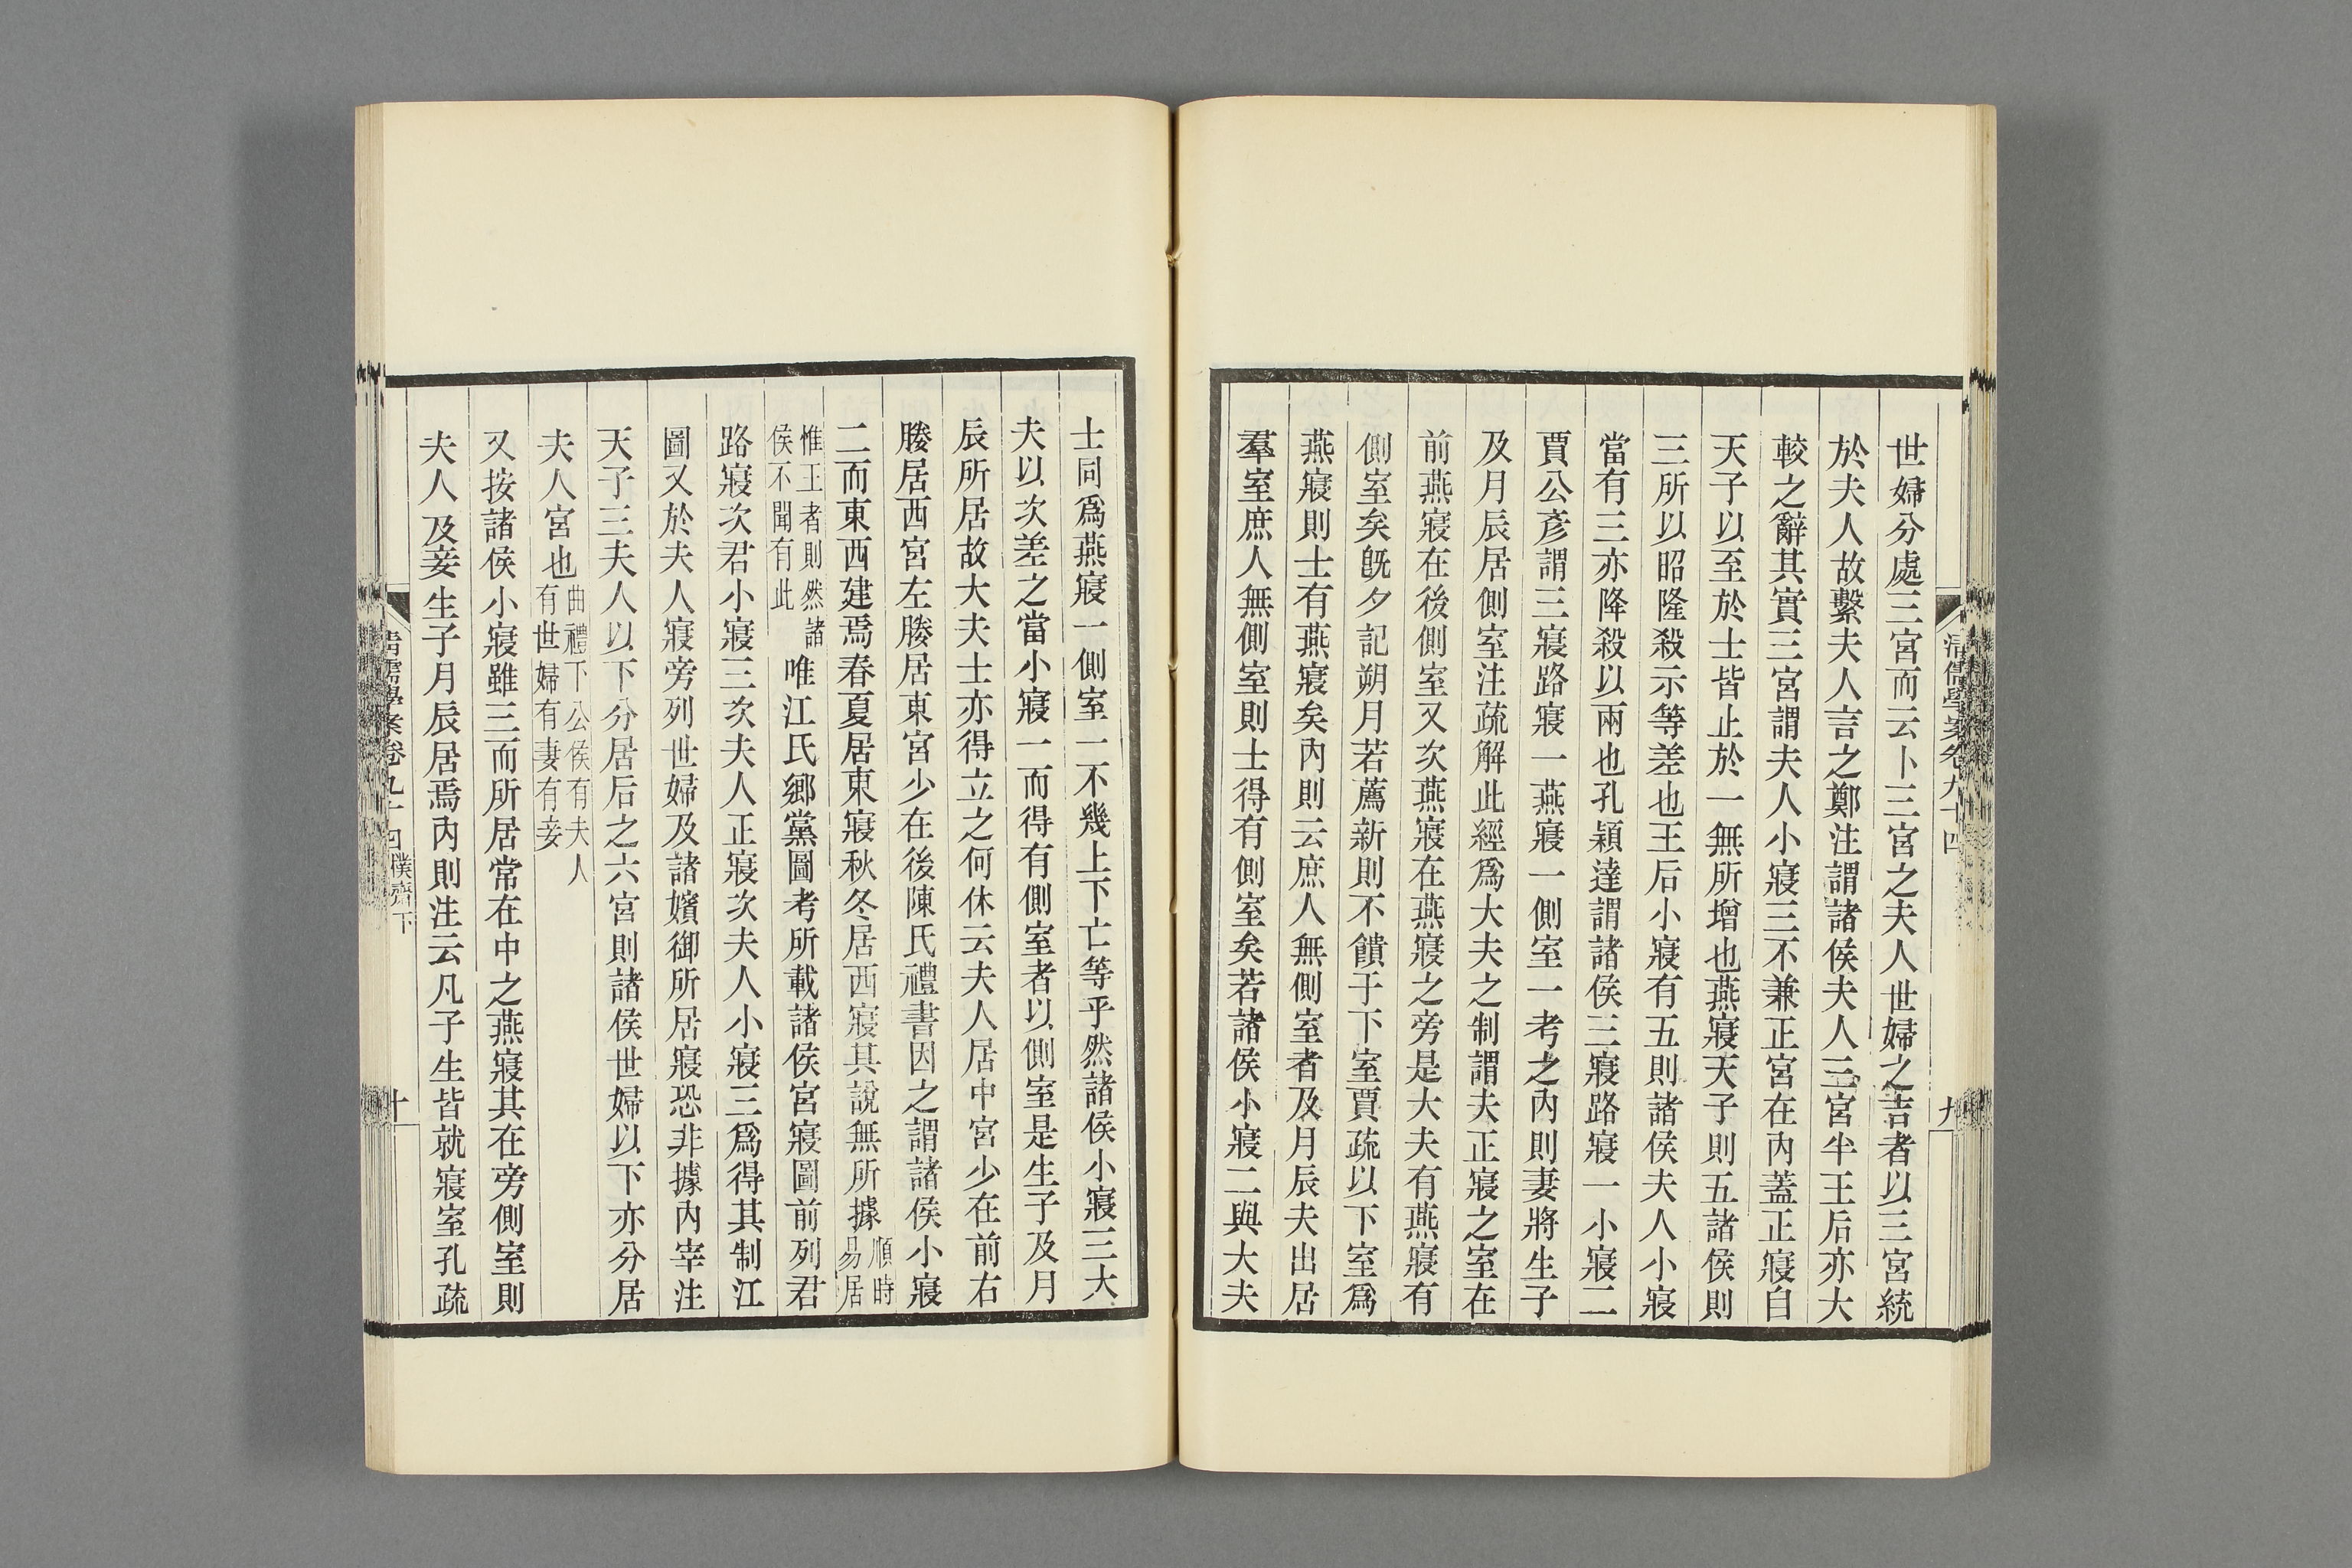 世婦分處三宮而云卜三宮之夫人世婦之吉者以三宮統
於夫人故繫夫人言之鄭注謂諸侯夫人三宮半王后亦大
較之辭其實三宮謂夫人小寢三不兼正宮在內蓋正寢自
天子以至於士皆止於一無所增也燕寢天子則五諸侯則
三所以昭隆殺示等差也王后小寢有五則諸侯夫人小寢
當有三亦降殺以兩也孔穎達謂諸侯三寢路寢一小寢二
賈公彥謂三寢路寢一燕寢一側室一考之內則妻將生子
及月辰居側室注疏解此經爲大夫之制謂夫正寢之室在
前燕寢在後側室又次燕寢在燕寢之旁是大夫有燕寢有
側室矣旣夕記朔月若薦新則不饋于下室賈疏以下室爲
燕寢則士有燕寢矣內則云庶人無側室者及月辰夫出居
羣室庶人無側室則士得有側室矣若諸侯小寢二與大夫
清儒學案卷九十四
九
士同爲燕寢一側室一不幾上下亡等乎然諸侯小寢三大
夫以次差之當小寢一而得有側室者以側室是生子及月
辰所居故大夫士亦得立之何休云夫人居中宮少在前右
媵居西宮左媵居東宮少在後陳氏禮書因之謂諸侯小寢
二而東西建焉春夏居東寢秋冬居西寢其說無所據順時易居
惟王者則然諸侯不聞有此唯江氏鄉黨圖考所載諸侯宮寢圖前列君
路寢次君小寢三次夫人正寢次夫人小寢三爲得其制江
圖又於夫人寢旁列世婦及諸嬪御所居寢恐非據內宰注
天子三夫人以下分居后之六宮則諸侯世婦以下亦分居
夫人宮也曲禮下公侯有夫人有世婦有妻有妾
又按諸侯小寢雖三而所居常在中之燕寢其在旁側室則
夫人及妾生子月辰居焉內則注云凡子生皆就寢室孔疏
清儒學案卷九十四 樸齋下
十